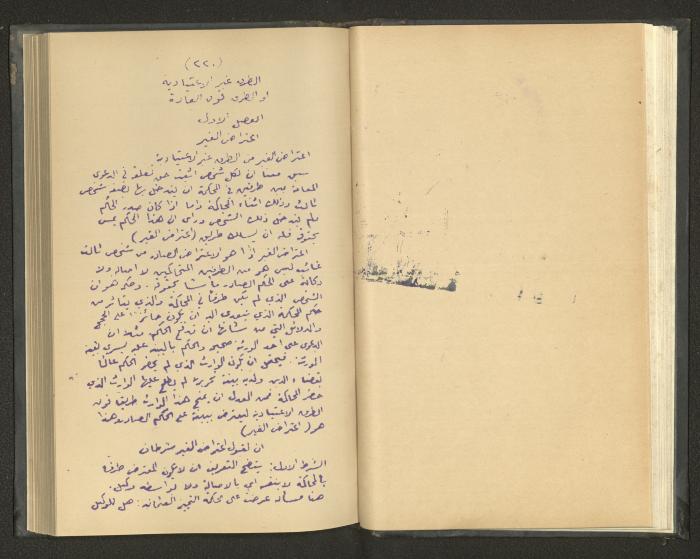 (٢٢٠)
الطرق غير الاعتيادية
او الطرق فوق العادة
الفصل الاول
اعتراض الغير
اعتراض الغير من الطرق غير الاعتيادية
سبق معنا ان لكل شخص اثبت حق تعلقه في الدعوى
المقامة بين طرفين في المحكمة ان يتدخل بها بصفة شخص
ثالث وذلك اثناء المحاكمة واما اذا كان صدر الحكم
ولم يتدخل ذلك الشخص ورأى ان هذا الحكم يمس
بحقوقه فله ان يسلك طريق (اعتراض الغير)
اعتراض الغير اذا هو الاعتراض الصادر من شخص ثالث
غائب ليس هو من الطرفين المتحاكمين لا اصالة ولا
وكالة على الحكم الصادر ماسا بحقوقه. وحكمه هو ان
الشخص الذي لم يكن طرفا في المحاكمة والذي يتأثر من
حكم المحكمة الذي يتعدى اليه ان يكون حائزا على الحجج
والدلائل التي من شأنها ان تدفع الحكم مثلا ان
الدعوى على احد الورثة صحيح والحكم بالبينة عليه يسري لبقية
الورثة. فيحتمل ان يكون الوارث الذي لم يحضر الحكم عالما
بقضاء الدين ولديه بينة تحريرية لم يطلع عليها الوارث الذي
حضر المحاكمة فمن العدل ان يمنح هذا الوارث طريقا فوق
الطرق الاعتيادية ليعترض ببينته على الحكم الصادر وهذا
هو (اعتراض الغير)
ان لقبول اعتراض الغير شرطان
الشرط الاول: يتضح التعريف ان لا يكون المعترض طرفا
بالمحاكمة لا بنفسه اي بالاصالة ولا بواسطة وكيل.
هنا مسألة عرضت على محكمة التمييز العثمانية: هل للوكيل